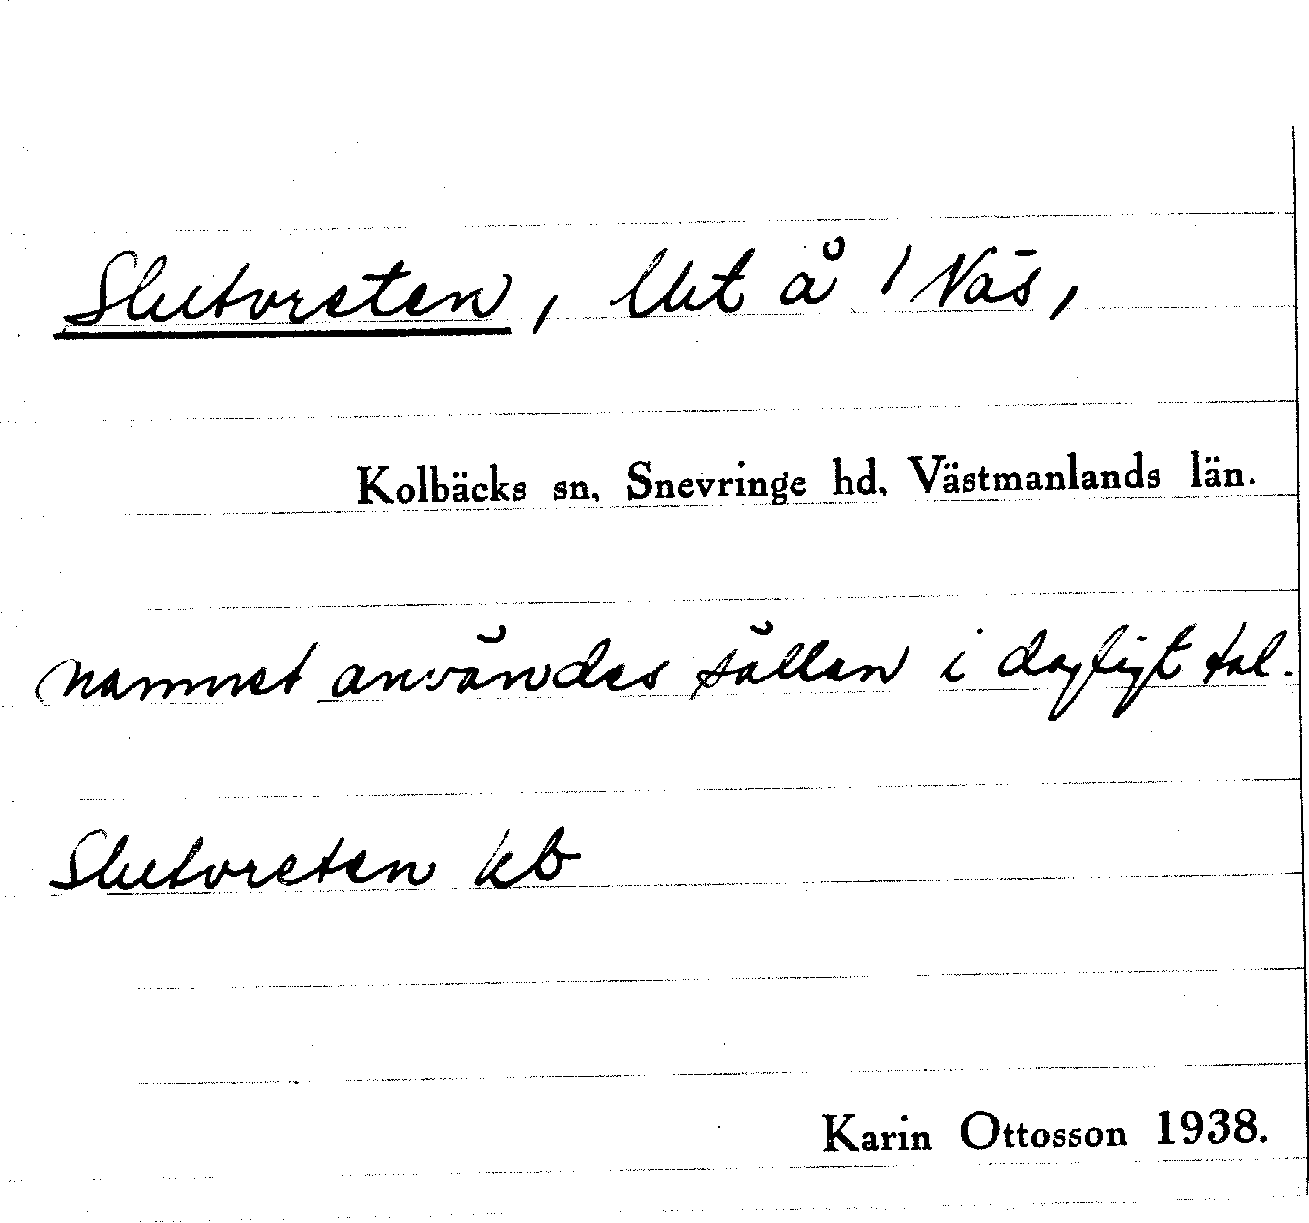 Slutvreten, Uet å 1 Näs,
Kolbäcks sn, Snevringe hd, Västmanlands län.
namnet användes sällan i dagligt tal.
Slutvreten kb
Karin Ottosson 1938.